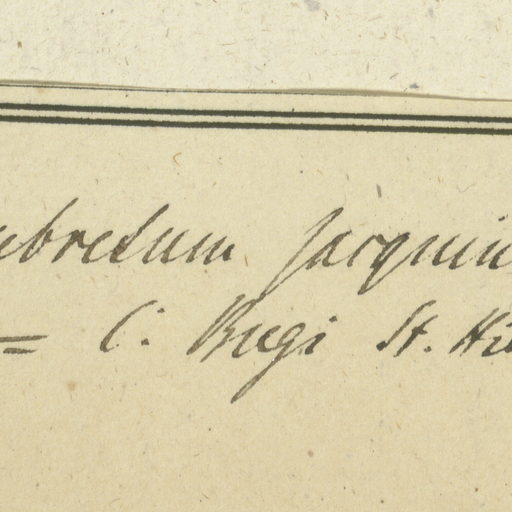 ubretum Jacquini
= C. Bugi St. Hi